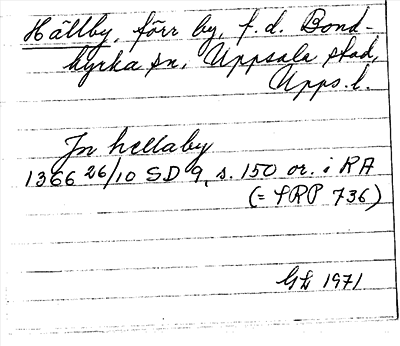 Hällby, förr by, f.d. Bond-
kyrka sn, Uppsala stad,
Upps. l.
Jn hellaby
1366 26/10 SD 9, s. 150 or. i RA
(= SRP 736)
GL 1971